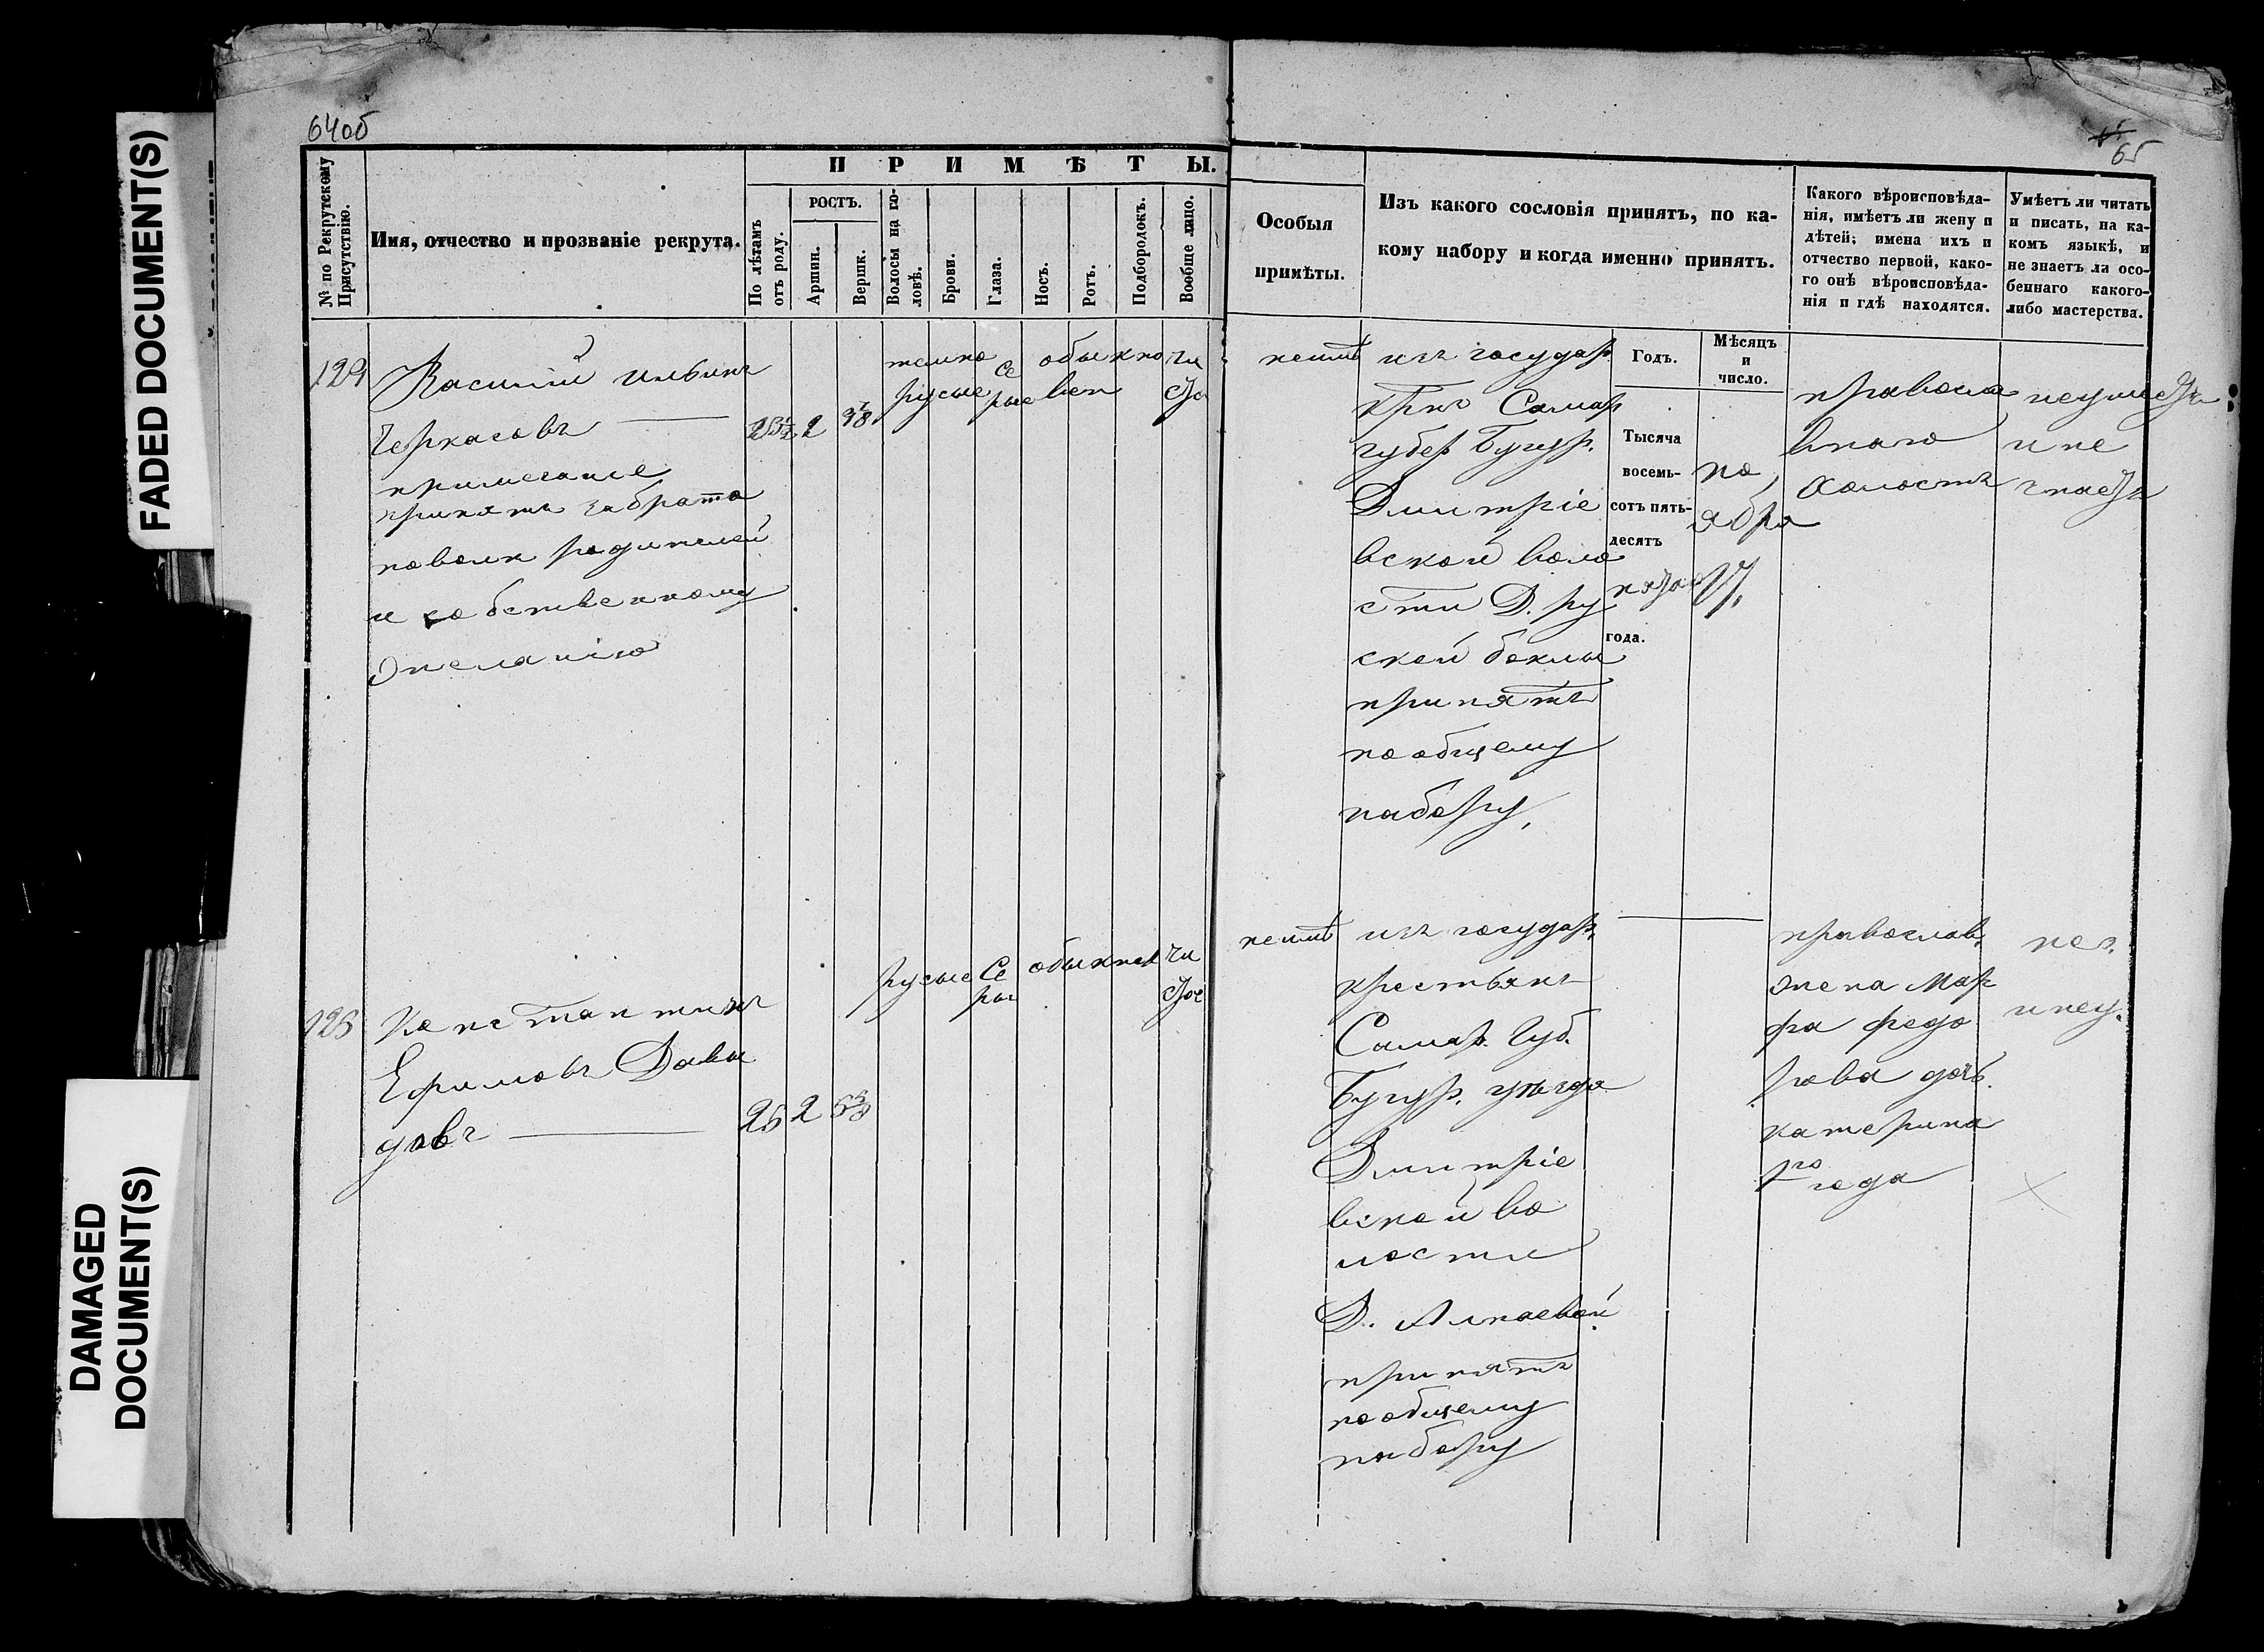 FADED DOCUMENT(S)
DAMAGED
DOCUMENT(S)
64об
65
№ по Рекрутскому
Присутствію.
Имя, отчество и прозваніе рекрута.
ПРИМѢТЫ.
По лѣтамъ
отъ роду.
РОСТЪ.
Аршин.
Вершк.
Волосы на го-
ловѣ.
Брови.
Глаза.
Носъ.
Ротъ.
Подбородокъ.
Вообще лицо.
Особыя
примѣты.
Изъ какого сословія принятъ, по ка-
кому набору и когда именно принятъ.
Какого вѣроисповѣда-
нія, имѣетъ ли жену и
дѣтей; имена ихъ и
отчество первой, како-
го онѣ вѣроисповѣда-
нія и гдѣ находятся.
Умѣетъ ли читать
и писать, на ка-
комъ языкѣ, и
не знаетъ ли осо-
беннаго какого-
либо мастерства.
124
Василій Ильинъ
Черкасовъ
примечание
принятъ за брата
поволи родителей
и собственному
желанію
2
темно
русые
се
рые
обыкно
вен
чи
сто
неимѣ
изъ государ.
крнъ Самар
губер Бугур.
Дмитріе
вской воло
сти Д. ру
ской боклы
принятъ
пообщему
набору,
Годъ.
Тысяча
восемь-
сотъ пять-
десятъ
пятаго
года.
Мѣсяцъ
и
число.
но
ября
православ
внаго
холостъ
неумеетъ
и не
знаетъ
125
Константинъ
Ефимовъ Давы
довъ
25 2
русые
Се
рые
обыкнов
чи
стое
неимѣ
изъ государ.
крестьянъ
Самар. Губ.
Бугур. уѣзда
Дмитріе
вской во
лости
Д. Алпаевой
принятъ
пообщему
набору
православ.
жена Мар
фа федо
рова дочь.
катерина
1го года
нез.
и неу.